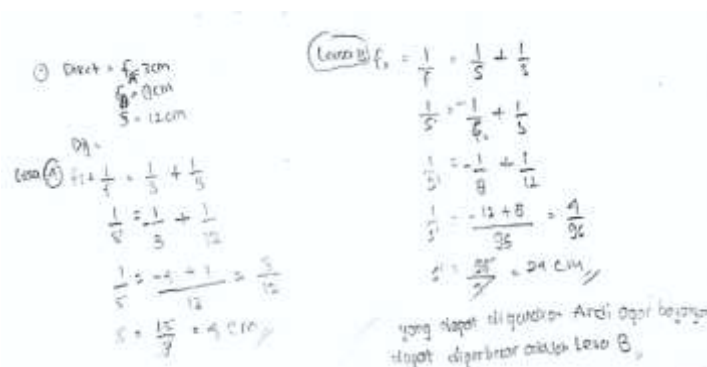 Diket = fA 3cm
fB 8cm
S = 12cm
Dit =
Lensa A f1 = 1/f = 1/s + 1/s
1/s' = -1/3 + 1/12
1/s = -4 + 1 / 12 = 3/12
Lensa B f2 = 1/f = 1/s + 1/s
1/s' = -1/f2 + 1/s
1/s' = -1/8 + 1/12
1/s' = -12 + 8 / 96 = 4/96
= 24 cm //
yang dapat digunakan Ardi agar
dapat diperbesar adalah Lensa B //